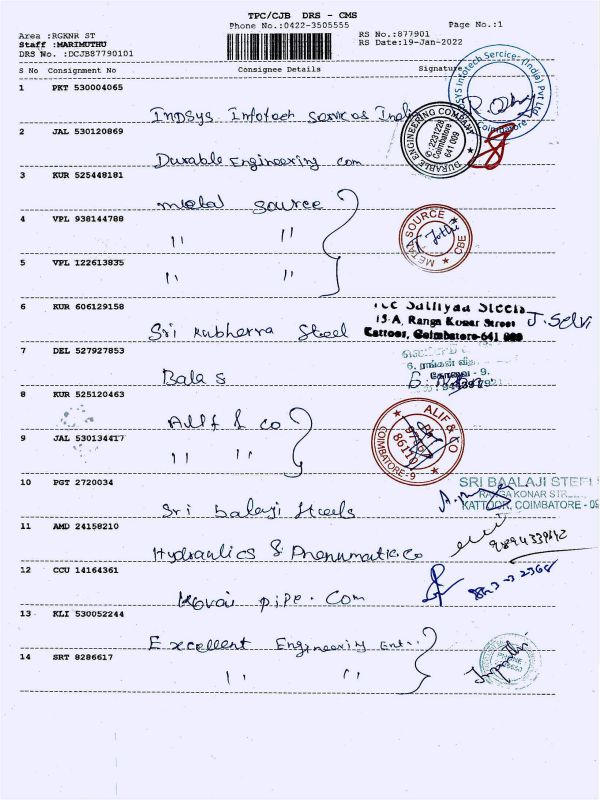 TPC/CJB DRS - CMS
Phone No.:0422-3505555
Page No.:1
Area :RGKNR ST
Staff :MARIMUTHU
DRS No. :DCJB87790101
RS No.:877901
RS Date:19-Jan-2022
S No Consignment No Consignee Details Signature
1 PKT 530004065
INDSYS Infotech Services
2 JAL 530120869
Durable Engineering com
DURABLE ENGINEERING COMPANY
2231228
Coimbatore
641 009
3 KUR 525448181
metal source
4 VPL 938144788
" "
METAL SOURCE CBE
5 VPL 122613835
" "
6 KUR 606129158
15-A, Ranga Konar Street
Kattoor, Coimbatore-641 009
J. Selvi
Sri Kubherra Steel
7 DEL 527927853
Bala S
8 KUR 525120463
Alif & co
9 JAL 530134417
" "
ALIF & CO
COIMBATORE-9
10 PGT 2720034
SRI BAALAJI STEELS
RANGA KONAR STREET
KATTOOR, COIMBATORE - 09
Sri balaji steels
11 AMD 24158210
Hydraulics & Pnenumatic.Co
12 CCU 14164361
Kovai pipe. Com
13 KLI 530052244
Excellent Engineering Ent..
14 SRT 8286617
" "